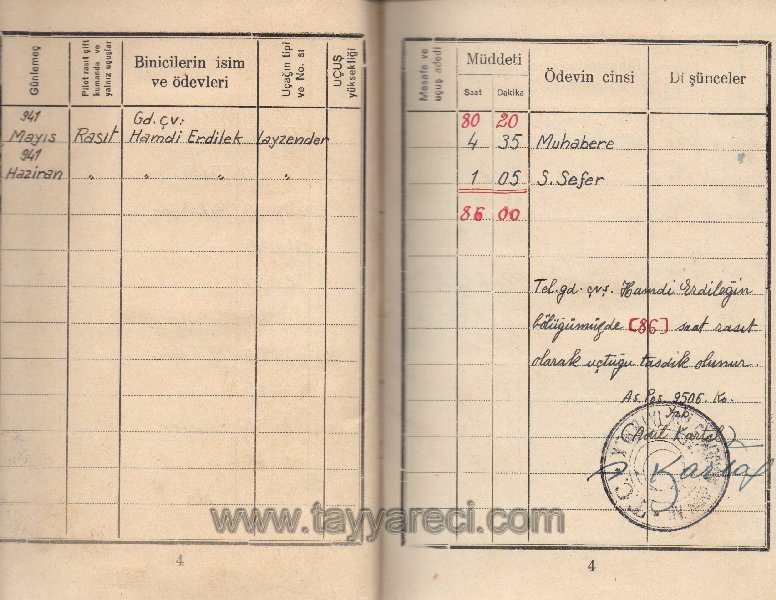 Günlemeç
Pilot rasıt çift kumanda ve yalnız uçuşlar
Binicilerin isim
ve ödevleri
Uçağın tipi
ve No. sı
UÇUŞ
yüksekliği
941
Mayıs
Rasıt
Gd. çv:
Hamdi Erdilek
layzender
941
Haziran
"
"
"
"
4
Mesafe ve
uçuş adedi
Müddeti
Saat
Dakika
Ödevin cinsi
Düşünceler
80 20
4 35 Muhabere
1 05 S. Sefer
86 00
Tel. gd. çvş. Hamdi Erdileğin
bölüğümüzde [86] saat rasıt
olarak uçtuğu tasdik olunur.
As. Pos. 9506. Ko.
Yzb.
Kartal
Kartal
www.tayyareci.com
4